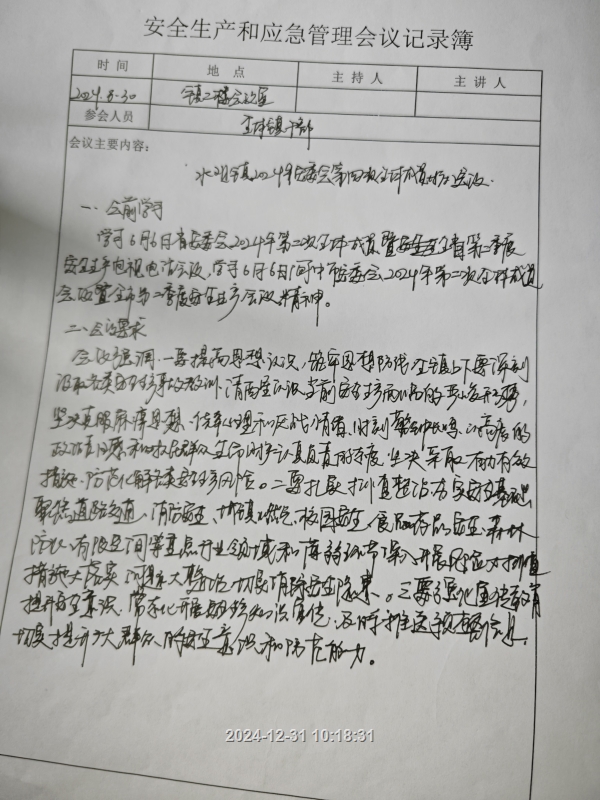 安全生产和应急管理会议记录簿
时间 地点 主持人 主讲人
2024.8-30 镇二楼会议室
参会人员 全体镇干部
会议主要内容:
镇2024年安委会第四次全体成员(扩大)会议.
一、会前学习
学习6月6日省安委会2024年第二次全体成员暨安全生产第二季度
安全生产电视电话会议,学习6月6日市安委会2024年第二次全体成员
会议暨全市第二季度安全生产会议精神。
二、会议要求
会议强调,一要提高思想认识,筑牢思想防线,全镇上下要深刻
汲取各类安全事故教训,清醒认识当前安全生产面临的严峻复杂形势,
坚决克服麻痹思想、侥幸心理和厌战情绪,时刻警钟长鸣,以高度的
政治责任感和对人民群众生命财产认真负责的态度,坚决采取有力有效
措施,防范化解各类安全生产风险。二要扎实排查整治夯实安全基础
聚焦道路交通、消防安全、城镇燃气、校园安全、食品药品安全、森林
防火、有限空间等重点行业领域和薄弱环节深入开展风险排查
措施大落实、问题大整治,切实消除安全隐患。三要强化宣传教育
提升安全意识,常态化开展安全知识宣传,及时推送预警信息,
切实提升广大群众的安全意识和防范能力。
2024-12-31 10:18:31